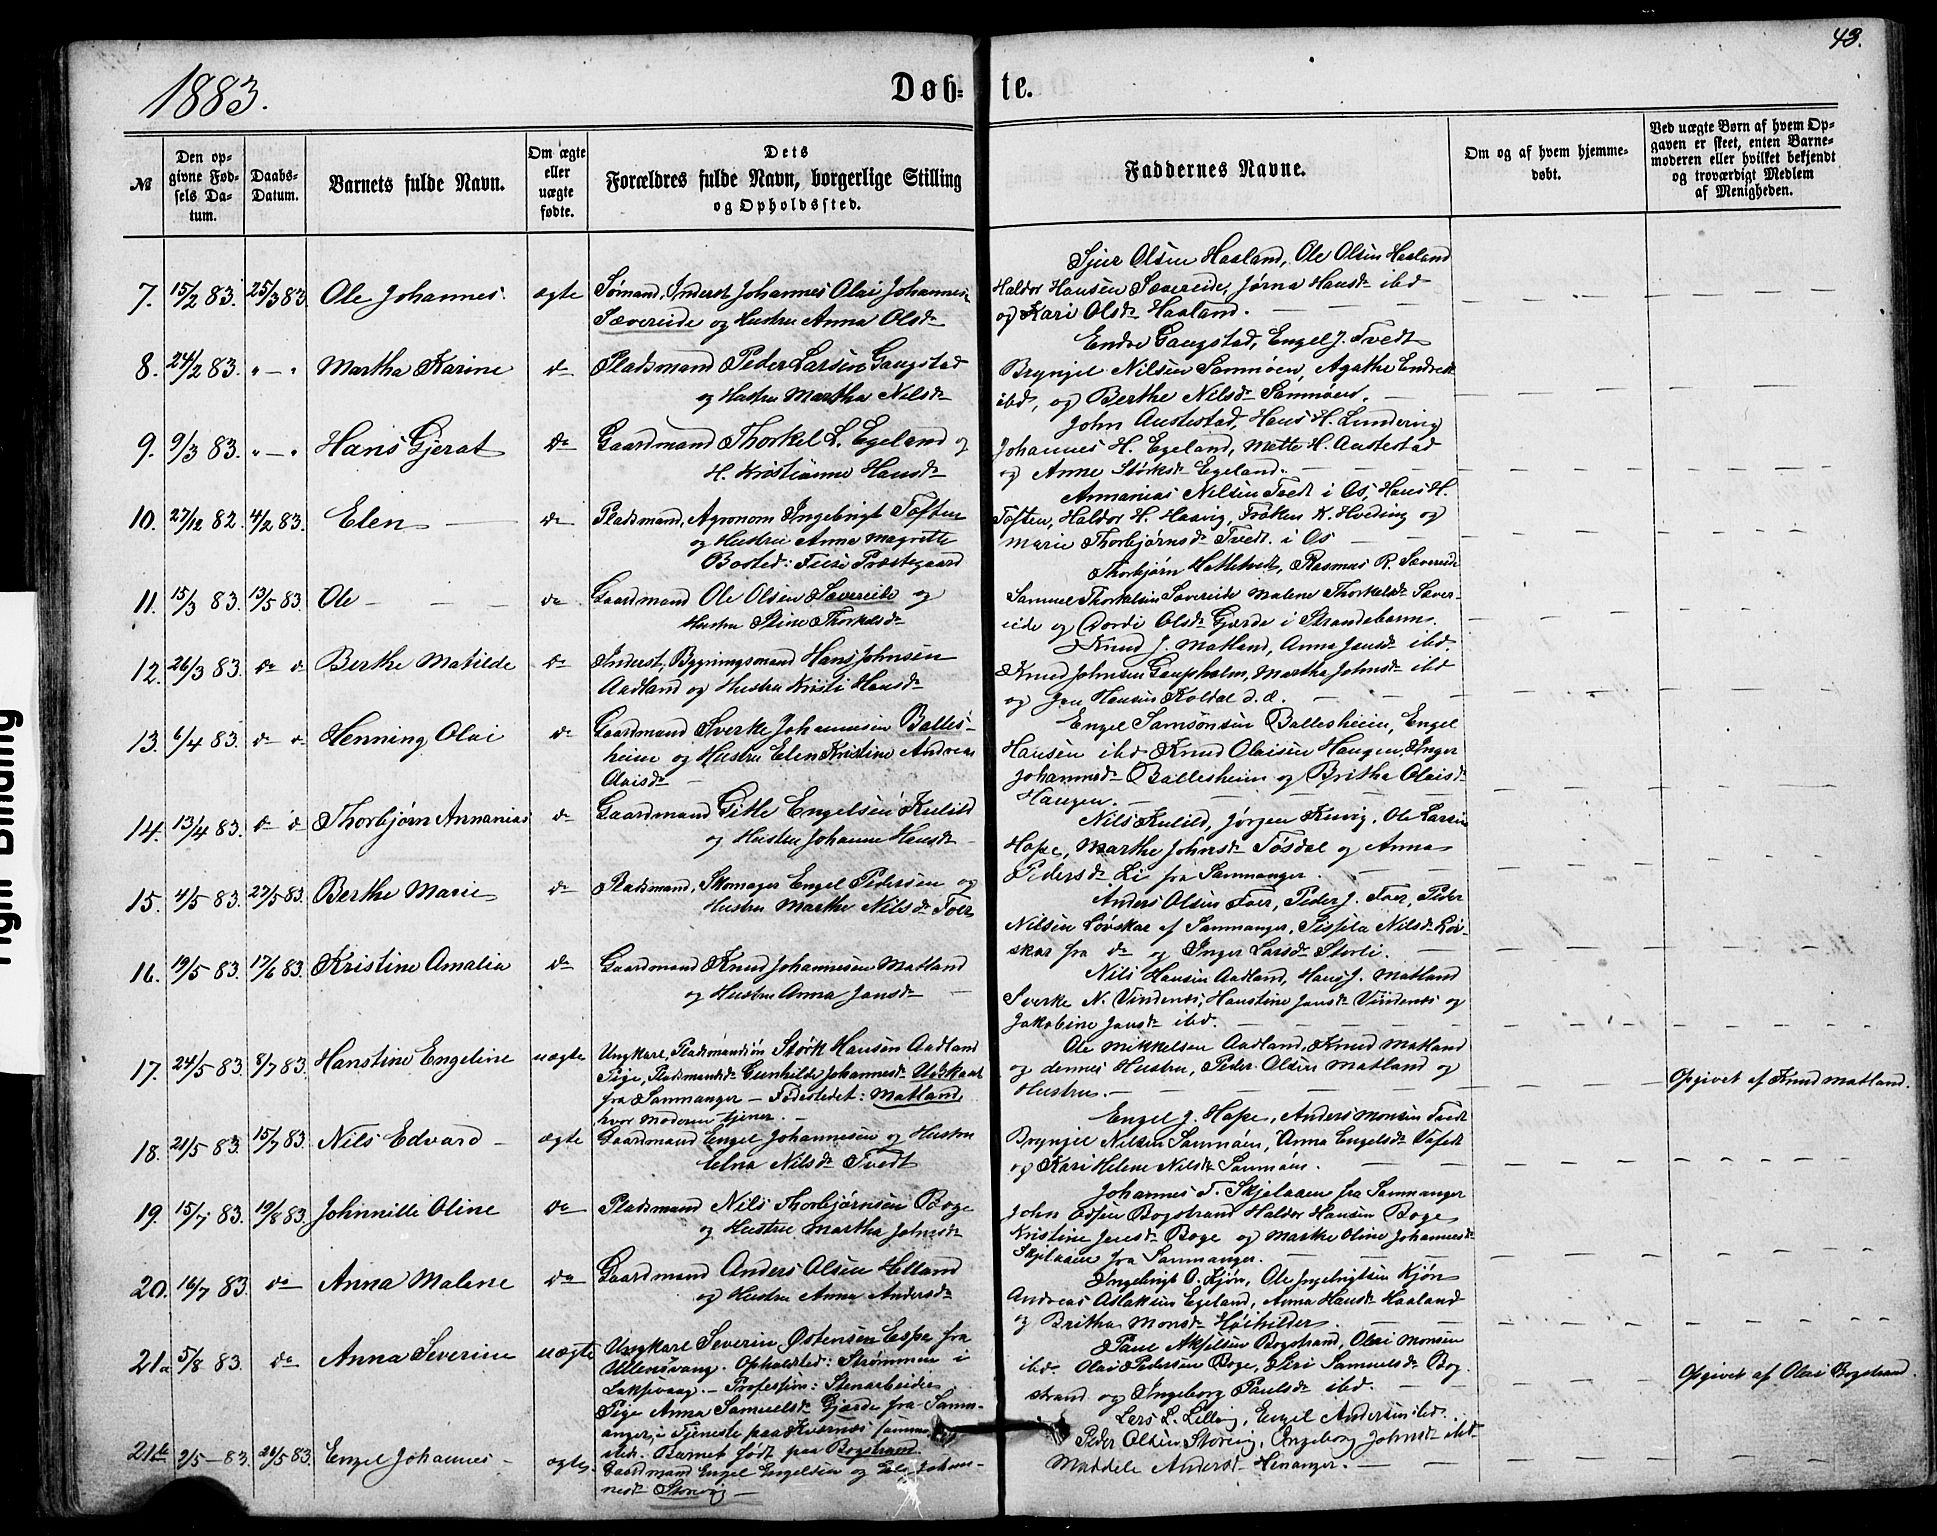 43.
1883.
Døb- te.
№
Den opgivne Fødsels Datum.
Daabs-Datum.
Barnets fulde Navn.
Om ægte eller uægte fødte.
Dets Forældres fulde Navn, borgerlige Stilling og Opholdssted.
Faddernes Navne.
Om og af hvem hjemmedøbt.
Ved uægte Børn af hvem Opgaven er skeet, enten Barnemoderen eller hvilket bekjendt og troværdigt Medlem af Menigheden.
7. 15/2 83. 25/3 83. Ole Johannes. ægte
Sømand, Inderst Johannes Olai Johannes.
Sævereide og Hustru Anna Olsdr
Sjur Olsen Haaland, Ole Olsen Haaland
Haldor Hansen Sævereide, Jørna Hansdr ibd
og Kari Olsdr Haaland.
8. 24/2 83. " — " Martha Karine do
Pladsmand Peder Larsen Gaugstad
og Hustru Martha Nilsdr
Endre Gaugstad, Engel J. Tvedt
Brynjel Nilsen Sammøen, Agathe Endresdr
ibd, og Berthe Nilsdr Sammøen.
9. 9/3 83. " — " Hans Gjerat do
Gaardmand Thorkel L. Egeland og
H. Kristianne Hansdr
John Austestad, Hans H. Lundering
Johannes H. Egeland, Mette H. Austestad
og Anne Størksdr Egeland.
10. 27/12 82. 4/2 83. Elen do
Pladsmand, Agronom Ingebrigt Toften
og Hustru Anne Magrette
Bosted: Fuse Præstegaard
Annanias Nilsen Tvedt i Os, Hans H.
Toften, Haldor H. Haavig, Frøken K. Hveding og
Marie Thorbjørnsdr Tvedt i Os
11. 15/3 83. 13/5 83. Ole do
Gaardmand Ole Olsen Sævereide og
Hustru Stine Thorkelsdr
Thorbjørn Hattetvedt, Rasmus R. Sævereide
Samuel Thorkelsen Sævereide Malene Thorkelsdr Sæver-
eide og Dordi Olsdr Gjerde i Strandebarm.
12. 26/3 83. do do Berthe Matilde do
Inderst, Bygningsmand Hans Johnsen
Aadland og Hustru Kristi Hansdr
Knud J. Matland, Anna Jansdr ibd.
Knud Johnsen Gaupholm, Martha Johnsdr ibd
og Jan Hansen Koldal d. æ.
13. 6/4 83. do do Henning Olai do
Gaardmand Sverke Johannesen Balles-
heim og Hustru Elen Kristine Andrea
Olaisdr
Engel Samsonsen Ballesheim, Engel
Hansen ibd Knud Olaisen Haugen, Inger
Johannesdr Ballesheim og Britha Olaisdr
Haugen.
14. 13/4 83. do do Thorbjørn Annanias do
Gaardmand Gitle Engelsen Kulild
og Hustru Johanne Hansdr
Nils Kulild, Jørgen Kuvig, Ole Larsen
Hope, Marthe Johnsdr Tøsdal og Anna
Pedersdr Li fra Sammanger.
15. 4/5 83. 27/5 83. Berthe Marie do
Pladsmand, Skomager Engel Pedersen og
Hustru Marthe Nilsdr Toer
Anders Olsen Toer, Peder J. Toer, Peder
Nilsen Løvskar af Sammanger, Sissela Nilsdr Løv-
skar fra do og Inger Larsdr Storli.
16. 19/5 83. 17/6 83. Kristine Amalia do
Gaardmand Knud Johannesen Matland
og Hustru Anna Jansdr
Nils Hansen Aadland, Hans J. Matland
Sverke N. Vindenes, Hanstine Jansdr Vindenes og
Jakobine Jansdr ibd.
17. 24/5 83. 8/7 83. Hanstine Engeline uægte
Ungkarl, Pladsmandssøn Størk Hansen Aadland
Pige, Pladsmandsdr Gunhilde Johannesdr Utskaar
fra Sammanger — Fødestedet: Matland,
hvor Moderen tjener.
Ole Mikkelsen Aadland, Knud Matland
og dennes Hustru, Peder Olsen Matland og
Hustru.
Opgivet af Knud Matland.
18. 21/5 83. 15/7 83. Nils Edvard ægte
Gaardmand Engel Johannesen og Hustru
Elna Nilsdr Tvedt
Engel J. Hope, Anders Monsen Tvedt
Brynjel Nilsen Sammøen, Anna Engelsdr Tvedt
og Kari Helene Nilsdr Sammøen.
19. 15/7 83. 19/8 83. Johnnille Oline do
Pladsmand Nils Thorbjørnsen Boge
og Hustru Martha Johnsdr
Johannes T. Skjelaaen fra Sammanger
John Edsen Bogstrand Haldor Hansen Boge
Kristine Jensdr Boge og Marthe Oline Johannesdr
Skjelaaen fra Sammanger.
20. 16/7 83. do Anna Malene do
Gaardmand Anders Olsen Helland
og Hustru Anna Andersdr
Ingebrigt O. Kjøn, Ole Ingebrigtsen Kjøn
Andreas Aslaksen Egeland, Anna Hansdr Haaland
og Britha Monsdr Høihilder.
21a 5/8 83. do Anna Severine uægte
Ungkarl Severin Østensen Espe fra
Ullensvang. Opholdsted: Strømmen i
Laksevaag. — Profession: Stenarbeider
Pige Anna Samuelsdr Gjærde fra Samm-
anger, i Tjeneste paa Kvernes samme-
sted. Barnet født paa Bogstrand
Paul Aksjelsen Bogstrand, Olai Monsen
ibd. Olai Pedersen Boge, Siri Samuelsdr Bog-
strand og Ingeborg Paulsdr ibd.
Opgivet af Olai Bogstrand.
21b 2/5 — 83. 21/5 83. Engel Johannes ægte
Gaardmand Engel Engelsen og Johan-
nesdr Storvig
Lars L. Lillvig, Engel Andersen ibd.
Peder Olsen Storvig, Ingeborg Johnsdr ibd.
Maddele Andersdr Henanger.
Tight Binding